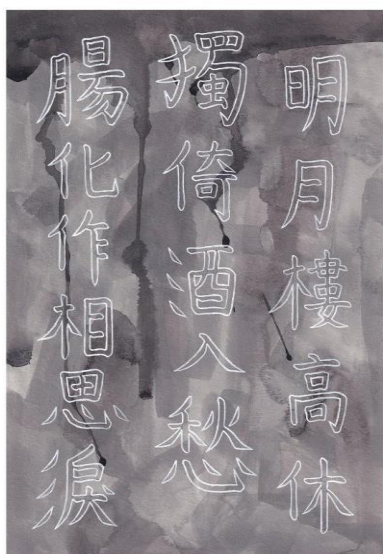 明月樓高休
擉倚酒入愁
腸化作相思淚